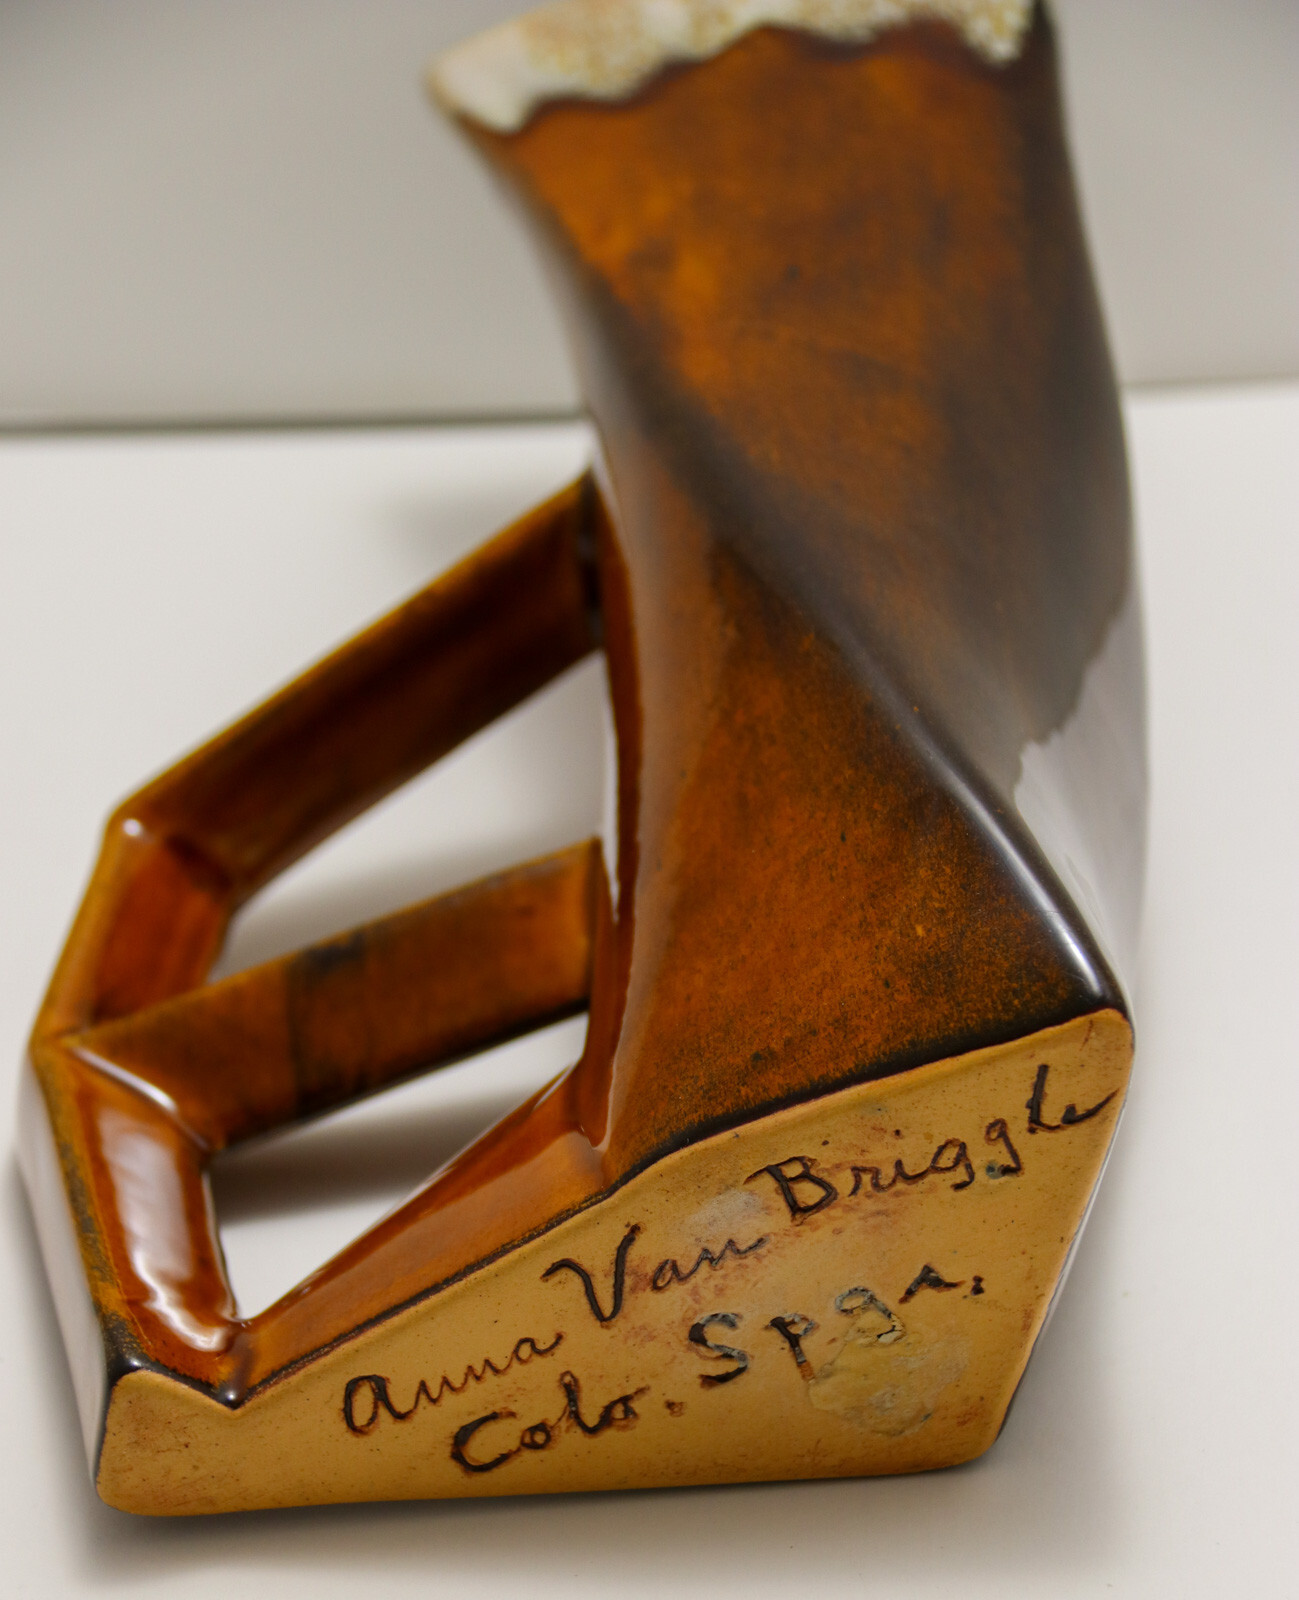 Anna Van Briggle
Colo. Spgs.